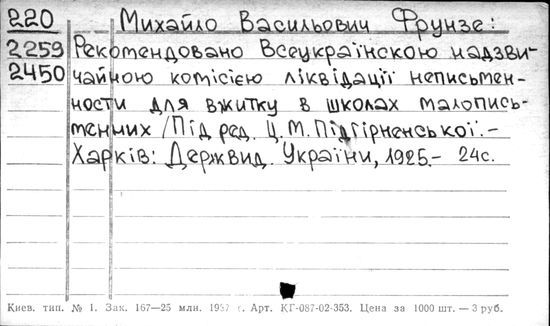 220 Михайло Васильович Фрунзе:
2259 Рекомендовано Всеукраїнською надзви-
2450 чайною комісією ліквідації неписьмен-
ности для вжитку в школах малопись-
менних / Під ред. Ц. М. Підгірненської. –
Харків: Держвид. України, 1925. – 24с.
Киев. тип. № 1. Зак. 167—25 млн. г. Арт. КГ-087-02-353. Цена за 1000 шт. — 3 руб.